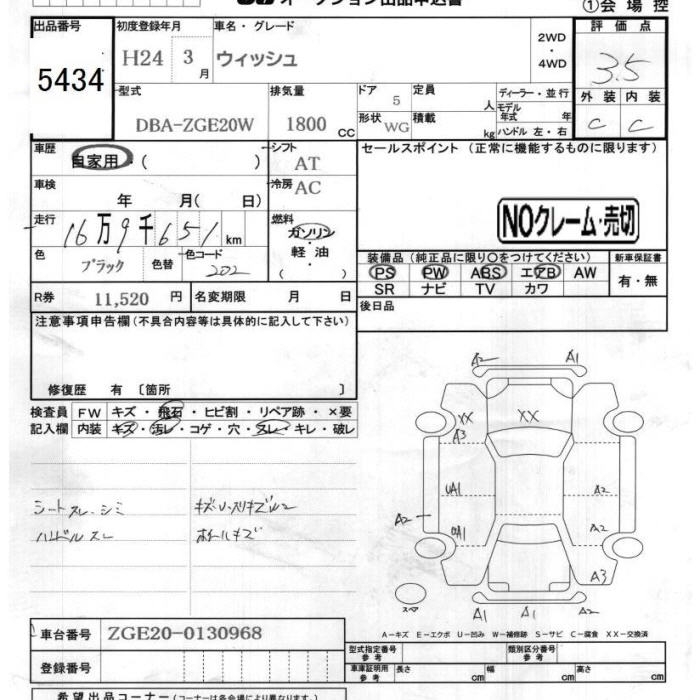 オークション出品申込書
①会場控
出品番号 初度登録年月 車名・グレード 評価点
5434 H24 3月 ウィッシュ 2WD・4WD 3.5
型式 排気量 ドア 5 定員 人 ディーラー・並行 外装 内装
DBA-ZGE20W 1800 CC 形状 WG 積載 kg モデル年式 年 ハンドル 左・右 C C
車歴 自家用・( ) シフト AT セールスポイント (正常に機能するものに限ります)
車検 年 月( 日) 冷房 AC
NOクレーム・売切
走行 16万9千651 km 燃料 ガソリン・軽油・( )
色 ブラック 色替 色コード 202
装備品(純正品に限り○をつけてください) 新車保証書
PS PW ABS エアB AW 有・無
SR ナビ TV カワ
R券 11,520 円 名変期限 月 日 後日品
注意事項申告欄(不具合内容等は具体的に記入して下さい)
修復歴 有 〔箇所 〕
検査員 FW キズ・飛石・ヒビ割・リペア跡・×要
記入欄 内装 キズ・汚レ・コゲ・穴・スレ・キレ・破レ
シートスレ・シミ
ハンドルスレ
ホイールキズ
A2 A1
XX XX
A3
UA1 A2
A2 UA1 A2
A3
スペア A1 A1 A2
A-キズ E-エクボ U-凹み W-補修跡 S-サビ C-腐食 XX-交換済
車台番号 ZGE20-0130968
登録番号
型式指定番号 参考 類別区分番号 参考
車庫証明用 参考 長さ cm 幅 cm 高さ cm
希望出品コーナー(コーナーは各会場により異なります。)